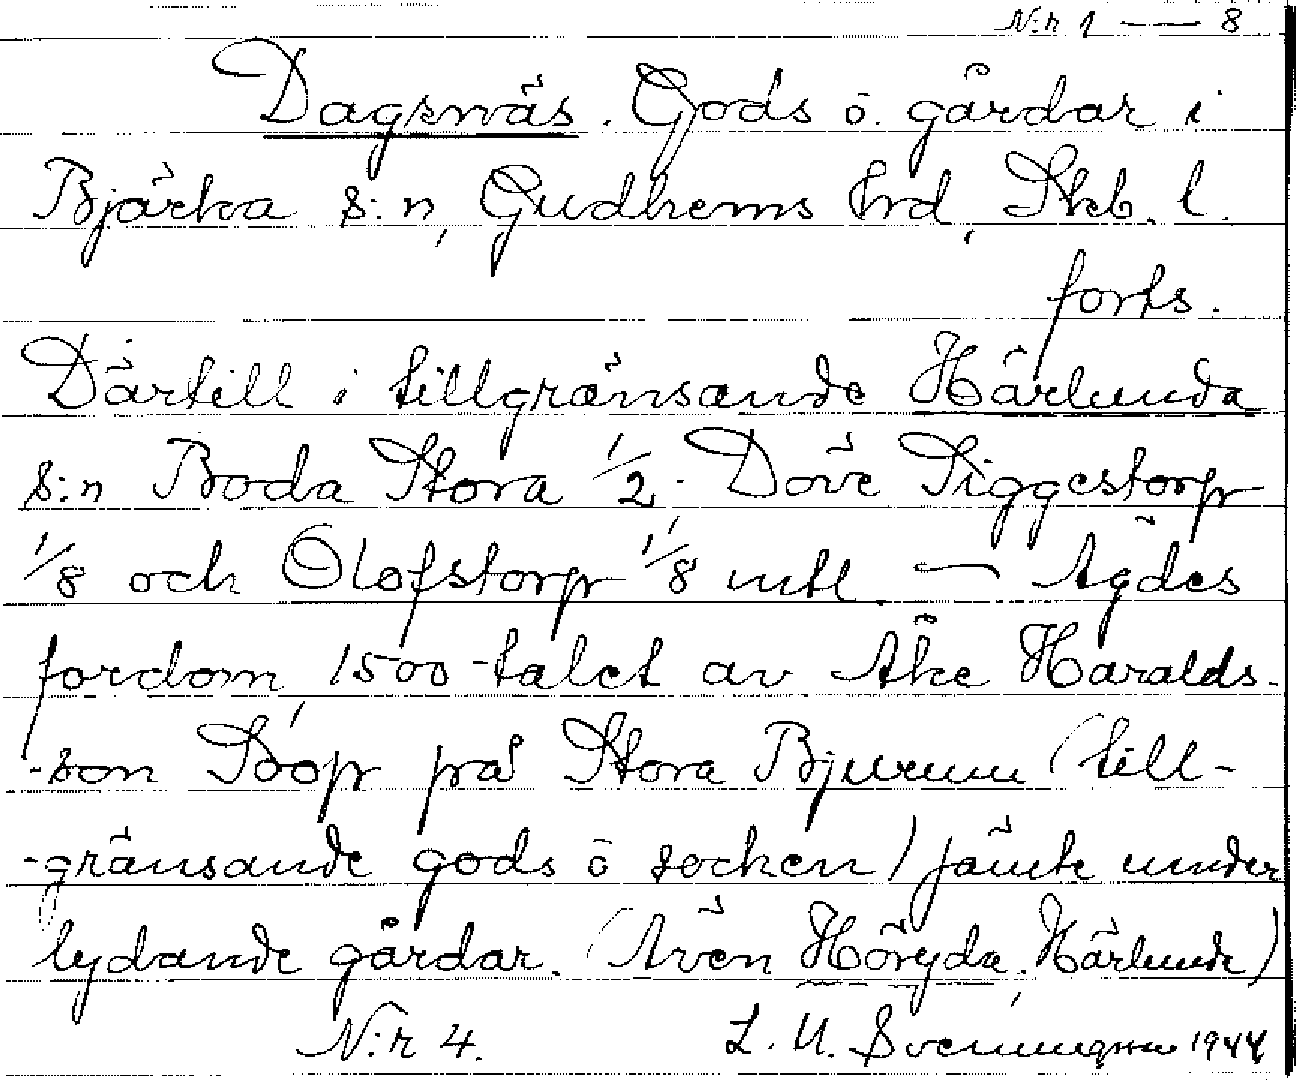 N:r 1 — 8
Dagsnäs. Gods o. gårdar i
Bjärka s:n, Gudhems hrd, Skb. l.
forts.
Därtill i tillgränsande Härlunda
s:n Boda Stora 1/2. Dove Siggestorp
1/8 och Olofstorp 1/8 mtl — Ägdes
fordom 1500-talet av Åke Haralds-
-son Soop på Stora Bjurum (till-
-gränsande gods o socken) jämte under
lydande gårdar. (Även Höryda, Härlunda)
N:r 4. L. U. Svenungsson 1944